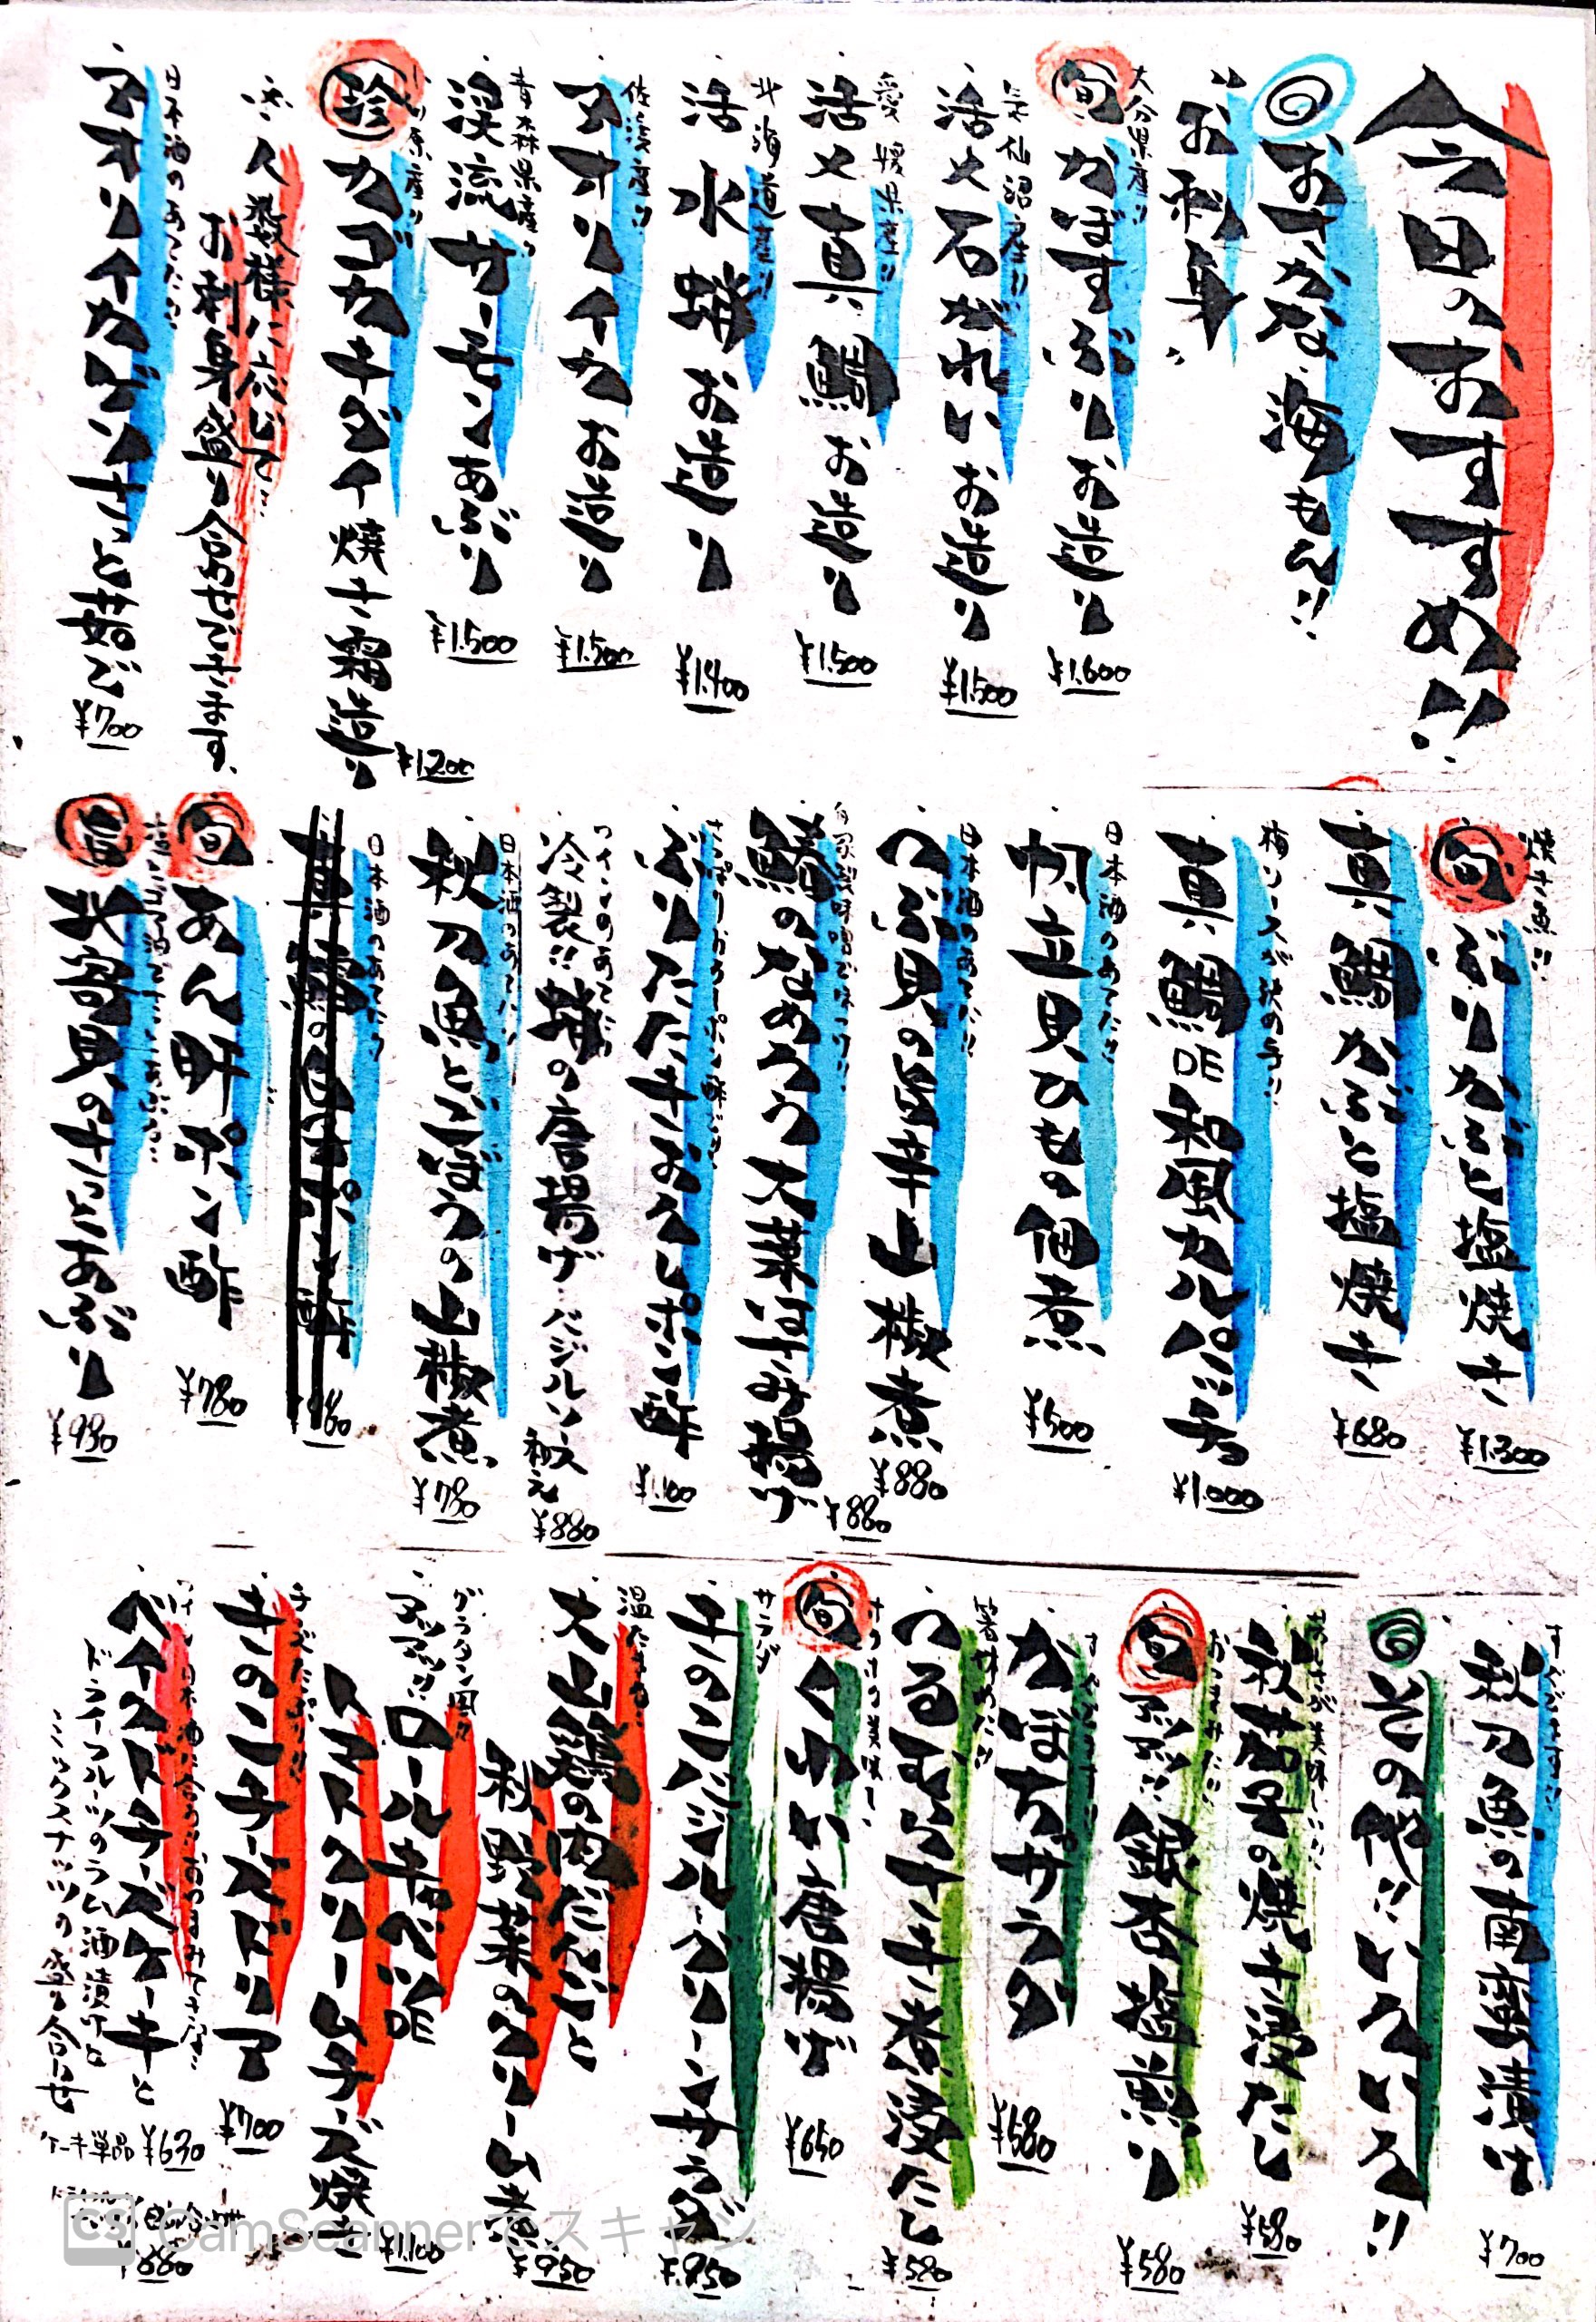 今日のおすすめ!!
おすかな海もん!!
お刺身
大分県産!!
旬 かぼすぶりお造り ¥1.600
気仙沼産!!
活〆石がれいお造り ¥1.500
愛媛県産!!
活〆真鯛お造り ¥1.500
北海道産!!
活水蛸お造り ¥1.400
佐渡産!!
マオリイカお造り ¥1.500
青森県産!!
渓流サーモンあぶり ¥1.500
珍 カゴカキダイ焼き霜造り ¥1200
人数様に応じて
お刺身盛り合わせできます。
日本酒のあてに!!
アオリイカゲソさっと茹で ¥700
焼き魚!!
旬 ぶりかぶと塩焼き ¥1.300
真鯛かぶと塩焼き ¥680
梅ソースが決め手!!
真鯛DE和風カルパッチョ ¥1.000
日本酒のあてに!!
帆立貝ひもの佃煮 ¥500
日本酒のあてに!!
つぶ貝の旨辛山椒煮 ¥880
鯵のなめろう大葉はさみ揚げ ¥880
さっぱりおろしポン酢で!!
ぶりたたきおろしポン酢 ¥1.100
冷製!!蛸の唐揚げバジルソース和え ¥880
日本酒のあてに!!
秋刀魚とごぼうの山椒煮 ¥780
日本酒のあてに!!
旬 あん肝ポン酢 ¥780
北寄貝のさっとあぶり ¥980
秋刀魚の南蛮漬け ¥700
その他!!いろいろ!!
秋茄子の焼き浸たし ¥580
おつまみに!!
旬 銀杏塩煎り ¥580
かぼちゃサラダ ¥580
つるむらさき煮浸たし ¥580
旬 くわい唐揚げ ¥650
サラダ
きのこバジルグリーンサラダ ¥850
温たまる!!
大山鶏の肉だんごと
秋野菜のクリーム煮 ¥950
グラタン風!!
アツアツ!!ロールキャベツDE
トマトクリームチーズ焼き ¥1.100
きのこチーズドリア ¥700
ベイクドチーズケーキと
ドライフルーツのラム酒漬け
ミックスナッツの盛り合わせ
ケーキ単品 ¥630
¥880
CS CamScannerでスキャン